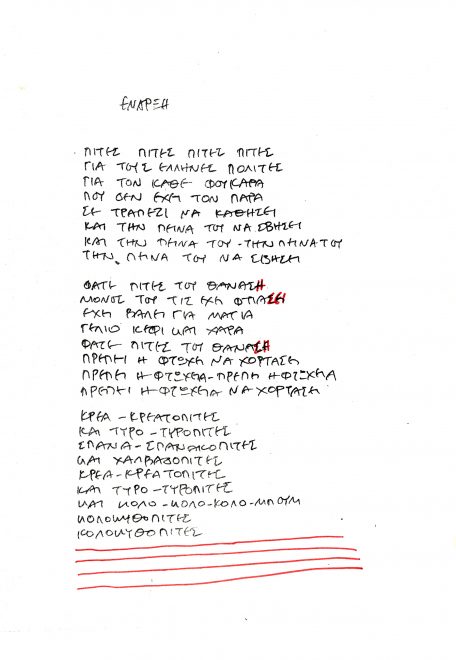 ΕΝΑΡΞΗ
ΠΙΤΕΣ ΠΙΤΕΣ ΠΙΤΕΣ ΠΙΤΕΣ
ΓΙΑ ΤΟΥΣ ΕΛΛΗΝΕΣ ΠΟΛΙΤΕΣ
ΓΙΑ ΤΟΝ ΚΑΘΕ ΦΟΥΚΑΡΑ
ΠΟΥ ΔΕΝ ΕΧΕΙ ΤΟΝ ΠΑΡΑ
ΣΕ ΤΡΑΠΕΖΙ ΝΑ ΚΑΘΗΣΕΙ
ΚΑΙ ΤΗΝ ΠΕΙΝΑ ΤΟΥ ΝΑ ΣΒΗΣΕΙ
ΚΑΙ ΤΗΝ ΠΕΙΝΑ ΤΟΥ - ΤΗΝ ΠΕΙΝΑ ΤΟΥ
ΤΗΝ ΠΕΙΝΑ ΤΟΥ ΝΑ ΣΒΗΣΕΙ
ΦΑΤΕ ΠΙΤΕΣ ΤΟΥ ΘΑΝΑΣΗ
ΜΟΝΟΣ ΤΟΥ ΤΙΣ ΕΧΕΙ ΦΤΙΑΣΕΙ
ΕΧΕΙ ΒΑΛΕΙ ΓΙΑ ΜΑΓΙΑ
ΓΕΛΙΟ ΚΕΦΙ ΚΑΙ ΧΑΡΑ
ΦΑΤΕ ΠΙΤΕΣ ΤΟΥ ΘΑΝΑΣΗ
ΠΡΕΠΕΙ Η ΦΤΩΧΕΙΑ ΝΑ ΧΟΡΤΑΣΕΙ
ΠΡΕΠΕΙ Η ΦΤΩΧΕΙΑ - ΠΡΕΠΕΙ Η ΦΤΩΧΕΙΑ
ΠΡΕΠΕΙ Η ΦΤΩΧΕΙΑ ΝΑ ΧΟΡΤΑΣΕΙ
ΚΡΕΑ - ΚΡΕΑΤΟΠΙΤΕΣ
ΚΑΙ ΤΥΡΟ - ΤΥΡΟΠΙΤΕΣ
ΣΠΑΝΑ - ΣΠΑΝΑΚΟΠΙΤΕΣ
ΚΑΙ ΧΑΛΒΑΔΟΠΙΤΕΣ
ΚΡΕΑ - ΚΡΕΑΤΟΠΙΤΕΣ
ΚΑΙ ΤΥΡΟ - ΤΥΡΟΠΙΤΕΣ
ΚΑΙ ΚΟΛΟ - ΚΟΛΟ - ΚΟΛΟ - ΜΠΟΥΜ
ΚΟΛΟΚΥΘΟΠΙΤΕΣ
ΚΟΛΟΚΥΘΟΠΙΤΕΣ